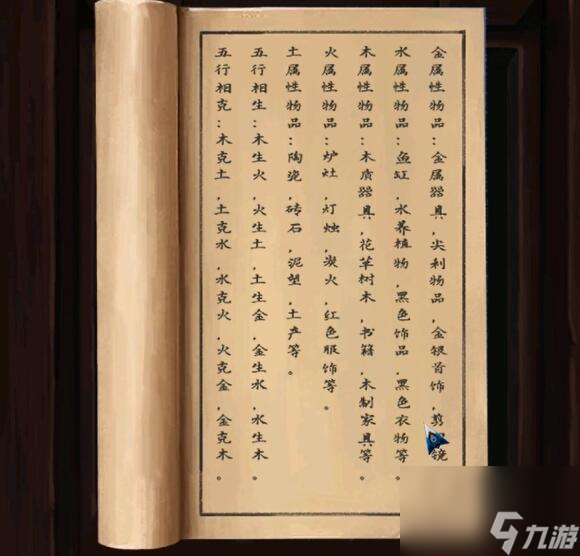 金属性物品：金属器具，尖利物品，金银首饰，剪
水属性物品：鱼缸，水养植物，黑色饰品，黑色衣物等。
木属性物品：木质器具，花草树木，书籍，木制家具等。
火属性物品：炉灶，灯烛，炭火，红色服饰等。
土属性物品：陶瓷，砖石，泥塑，土产等。
五行相生：木生火，火生土，土生金，金生水，水生木。
五行相克：木克土，土克水，水克火，火克金，金克木。
九游